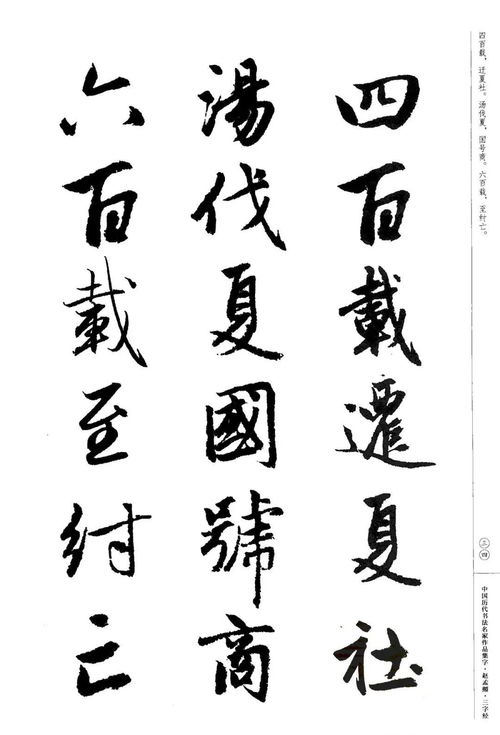 四百載遷夏社
湯伐夏國號商
六百載至紂亡
四百载，迁夏社。汤伐夏，国号商。六百载，至纣亡。
三四
中国历代书法名家作品集字·赵孟頫·三字经